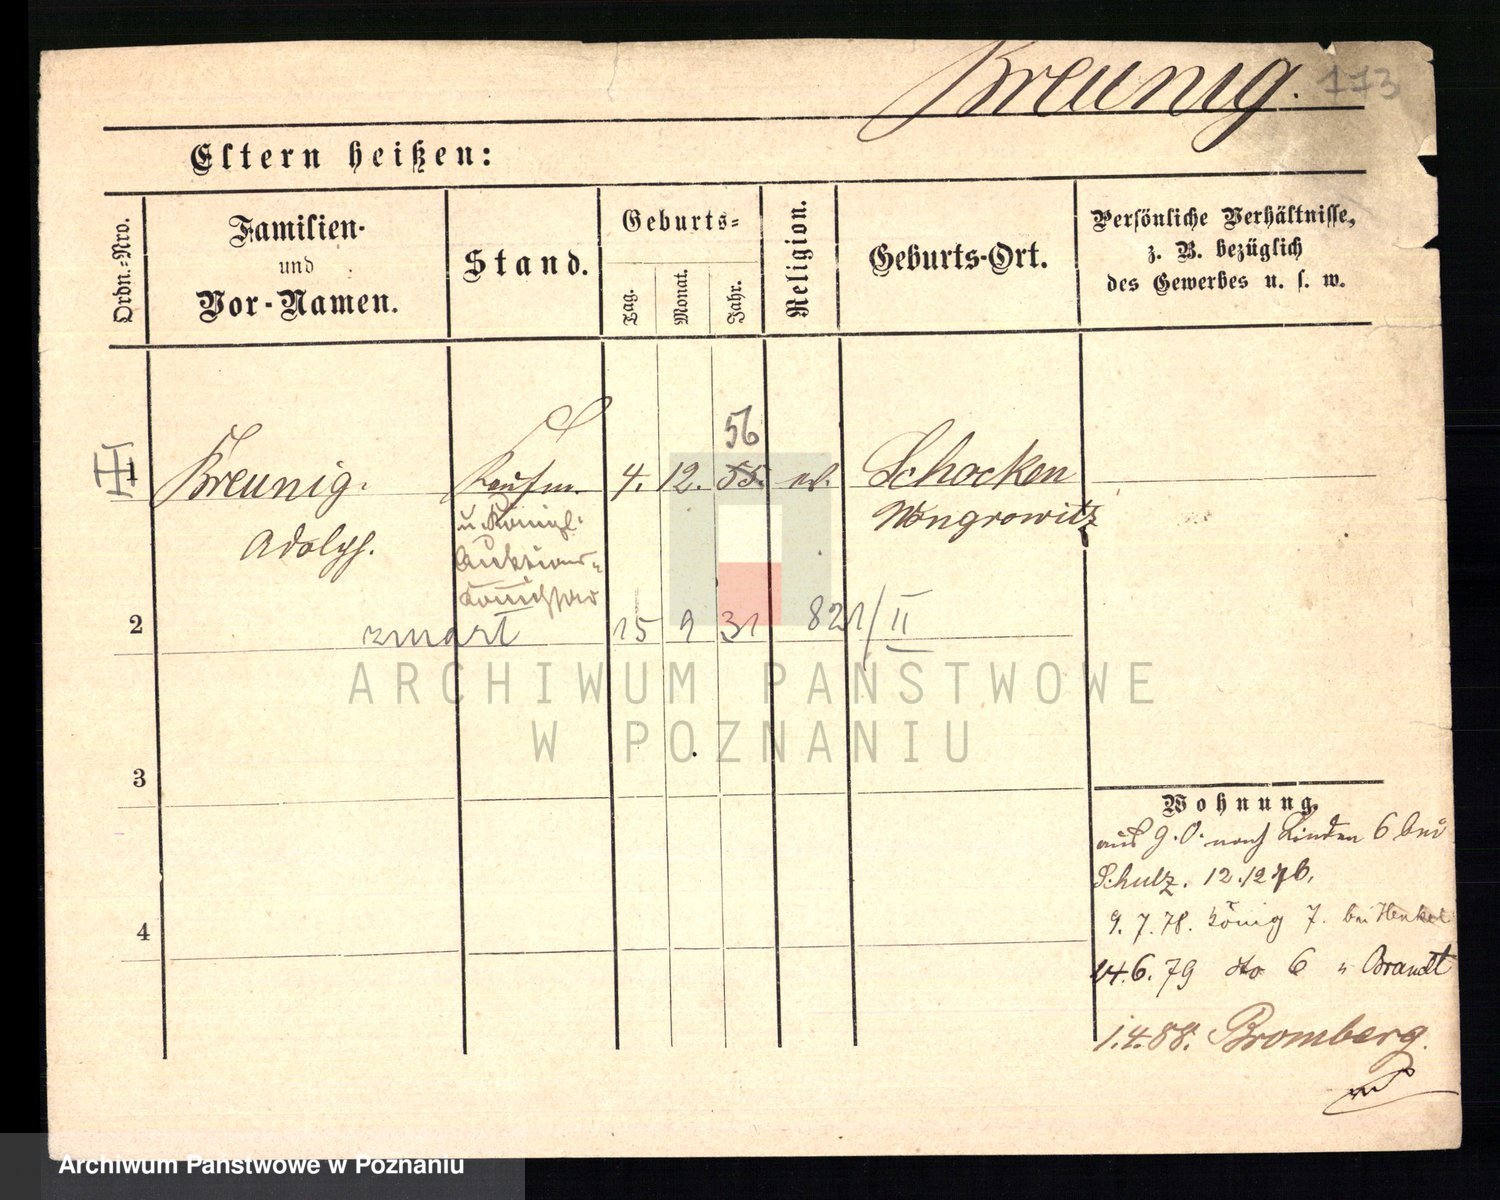 Breunig. 113
Eltern heißen:
Ordn.-Nro.
Familien-
und
Vor-Namen.
Stand.
Geburts-
Tag.
Monat.
Jahr.
Religion.
Geburts-Ort.
Persönliche Verhältnisse,
z. B. bezüglich
des Gewerbes u. s. w.
56
1 Breunig. Kaufm. 4. 12. 55. ev. Schocken
Adolph. u. Königl. Wongrowitz
Auktions-
Komissar
2 zmarł 15 9 31 821/II
ARCHIWUM PAŃSTWOWE
W POZNANIU
3
4
Wohnung.
aus G. O. nach Linden 6 bei
Schulz. 12.12 76.
9. 7. 78. König 7. bei Henkel
14.6.79 dto 6 " Brandt
1.4.88. Bromberg.
Archiwum Państwowe w Poznaniu